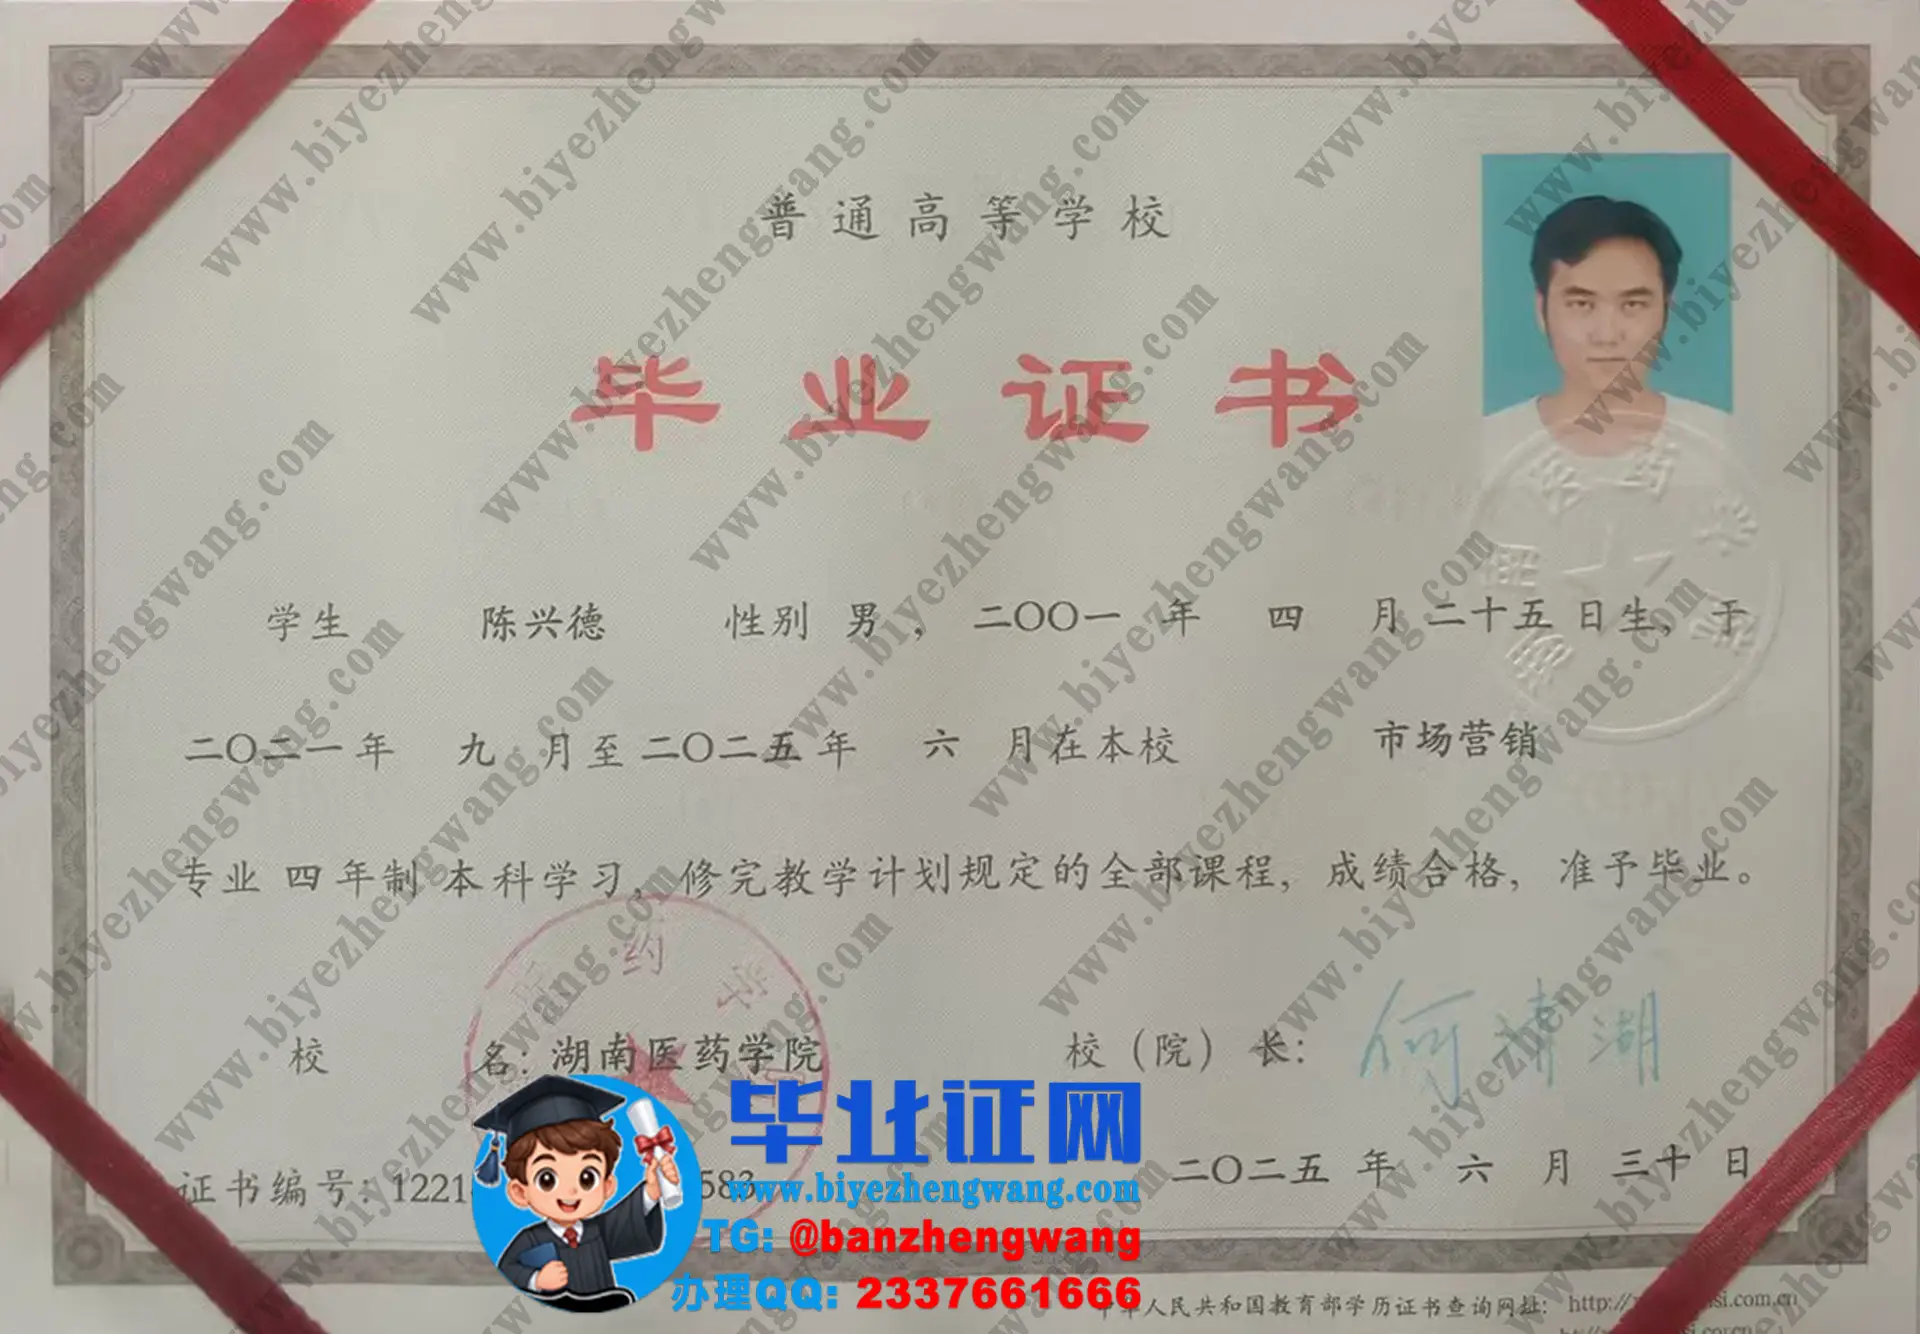 普通高等学校
毕业证书
学生 陈兴德 性别 男，二〇〇一年 四 月二十五日生，于
二〇二一年 九 月至二〇二五年 六 月在本校 市场营销
专业 四年制 本科学习，修完教学计划规定的全部课程，成绩合格，准予毕业。
校 名：湖南医药学院 校（院）长：何清湖
毕业证网
证书编号：1221 583 二〇二五年 六 月 三十 日
www.biyezhengwang.com
TG: @banzhengwang
办理QQ: 2337661666
中华人民共和国教育部学历证书查询网址：http://